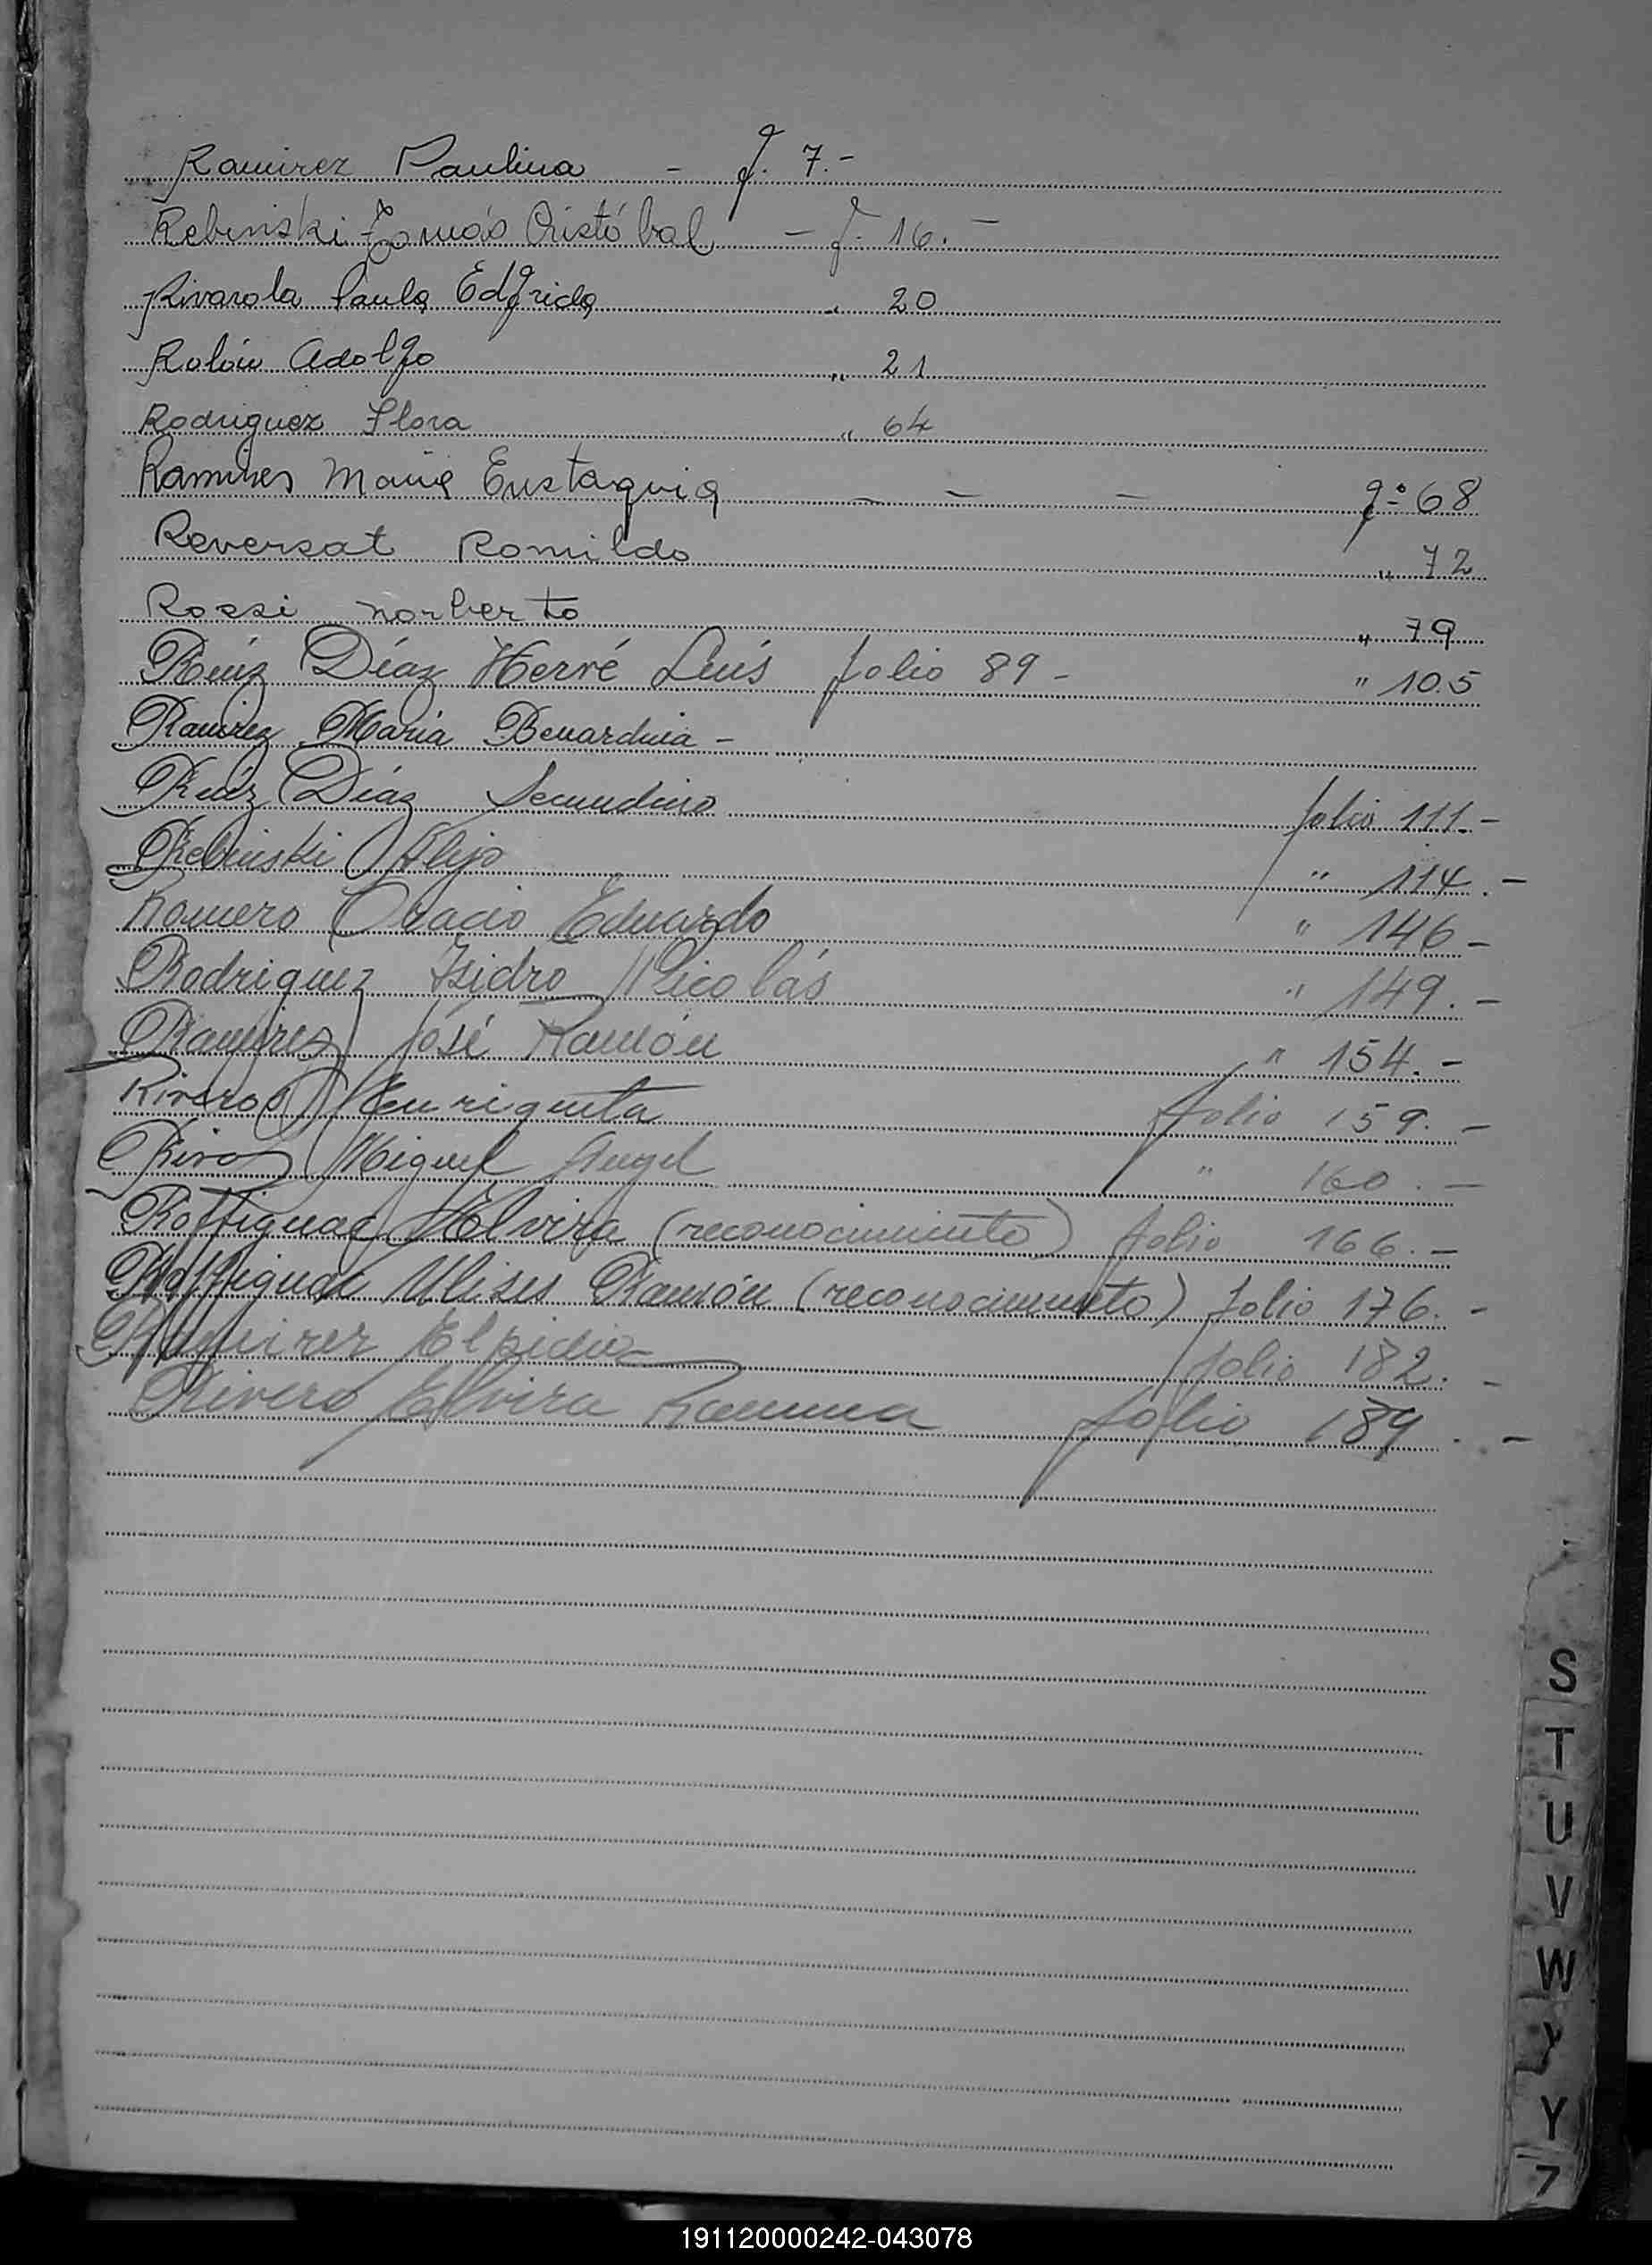 Ramirez Paulina - f. 7.-
Rebinski Tomás Cristóbal - f. 16. -
Rivarola Paula Edfrida " 20
Rolón Adolfo " 21
Rodriguez Flora " 64
Ramires Maria Eustaquia - - - f: 68
Reversat Romildo " 72
Rossi Norberto " 79
Ruíz Díaz Hervé Luís folio 89 - " 105
Ramirez María Bernardina -
Ruíz Díaz Secundino folio 111.-
Rebinski Alejo " 114.-
Romero Oracio Eduardo " 146-
Rodriguez Isidro Nicolás " 149.-
Ramirez José Ramón " 154.-
Riveros Enriqueta folio 159.-
Rivas Miguel Angel " 160.-
Roffignac Elvira (reconocimiento) folio 166.-
Roffignac Ulises Ramón (reconocimiento) folio 176.-
Ramirez Elpidio folio 182.-
Rivero Elvira Ramona folio 189.-
S
T
U
V
W
X
Y
Z
191120000242-043078